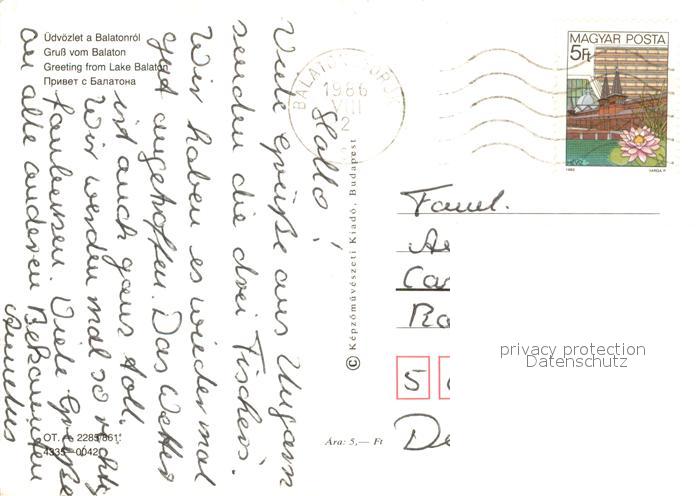 Üdvözlet a Balatonról
Gruß vom Balaton
Greeting from Lake Balaton
Привет с Балатона
Hallo!
Viele Grüße aus Ungarn
senden die drei Fischers.
Wir haben es wieder mal
gut angetroffen. Das Wetter
ist auch ganz toll.
Wir werden mal so richtig
faulenzen. Viele Grüße
an alle anderen Bekannten
OT. A. 2285/861
4335–0042
BALATON
1986
VIII
2
MAGYAR POSTA
5Ft
1983
VARGA P.
© Képzőművészeti Kiadó, Budapest
Ára: 5,— Ft
Faml.
5
De
privacy protection
Datenschutz